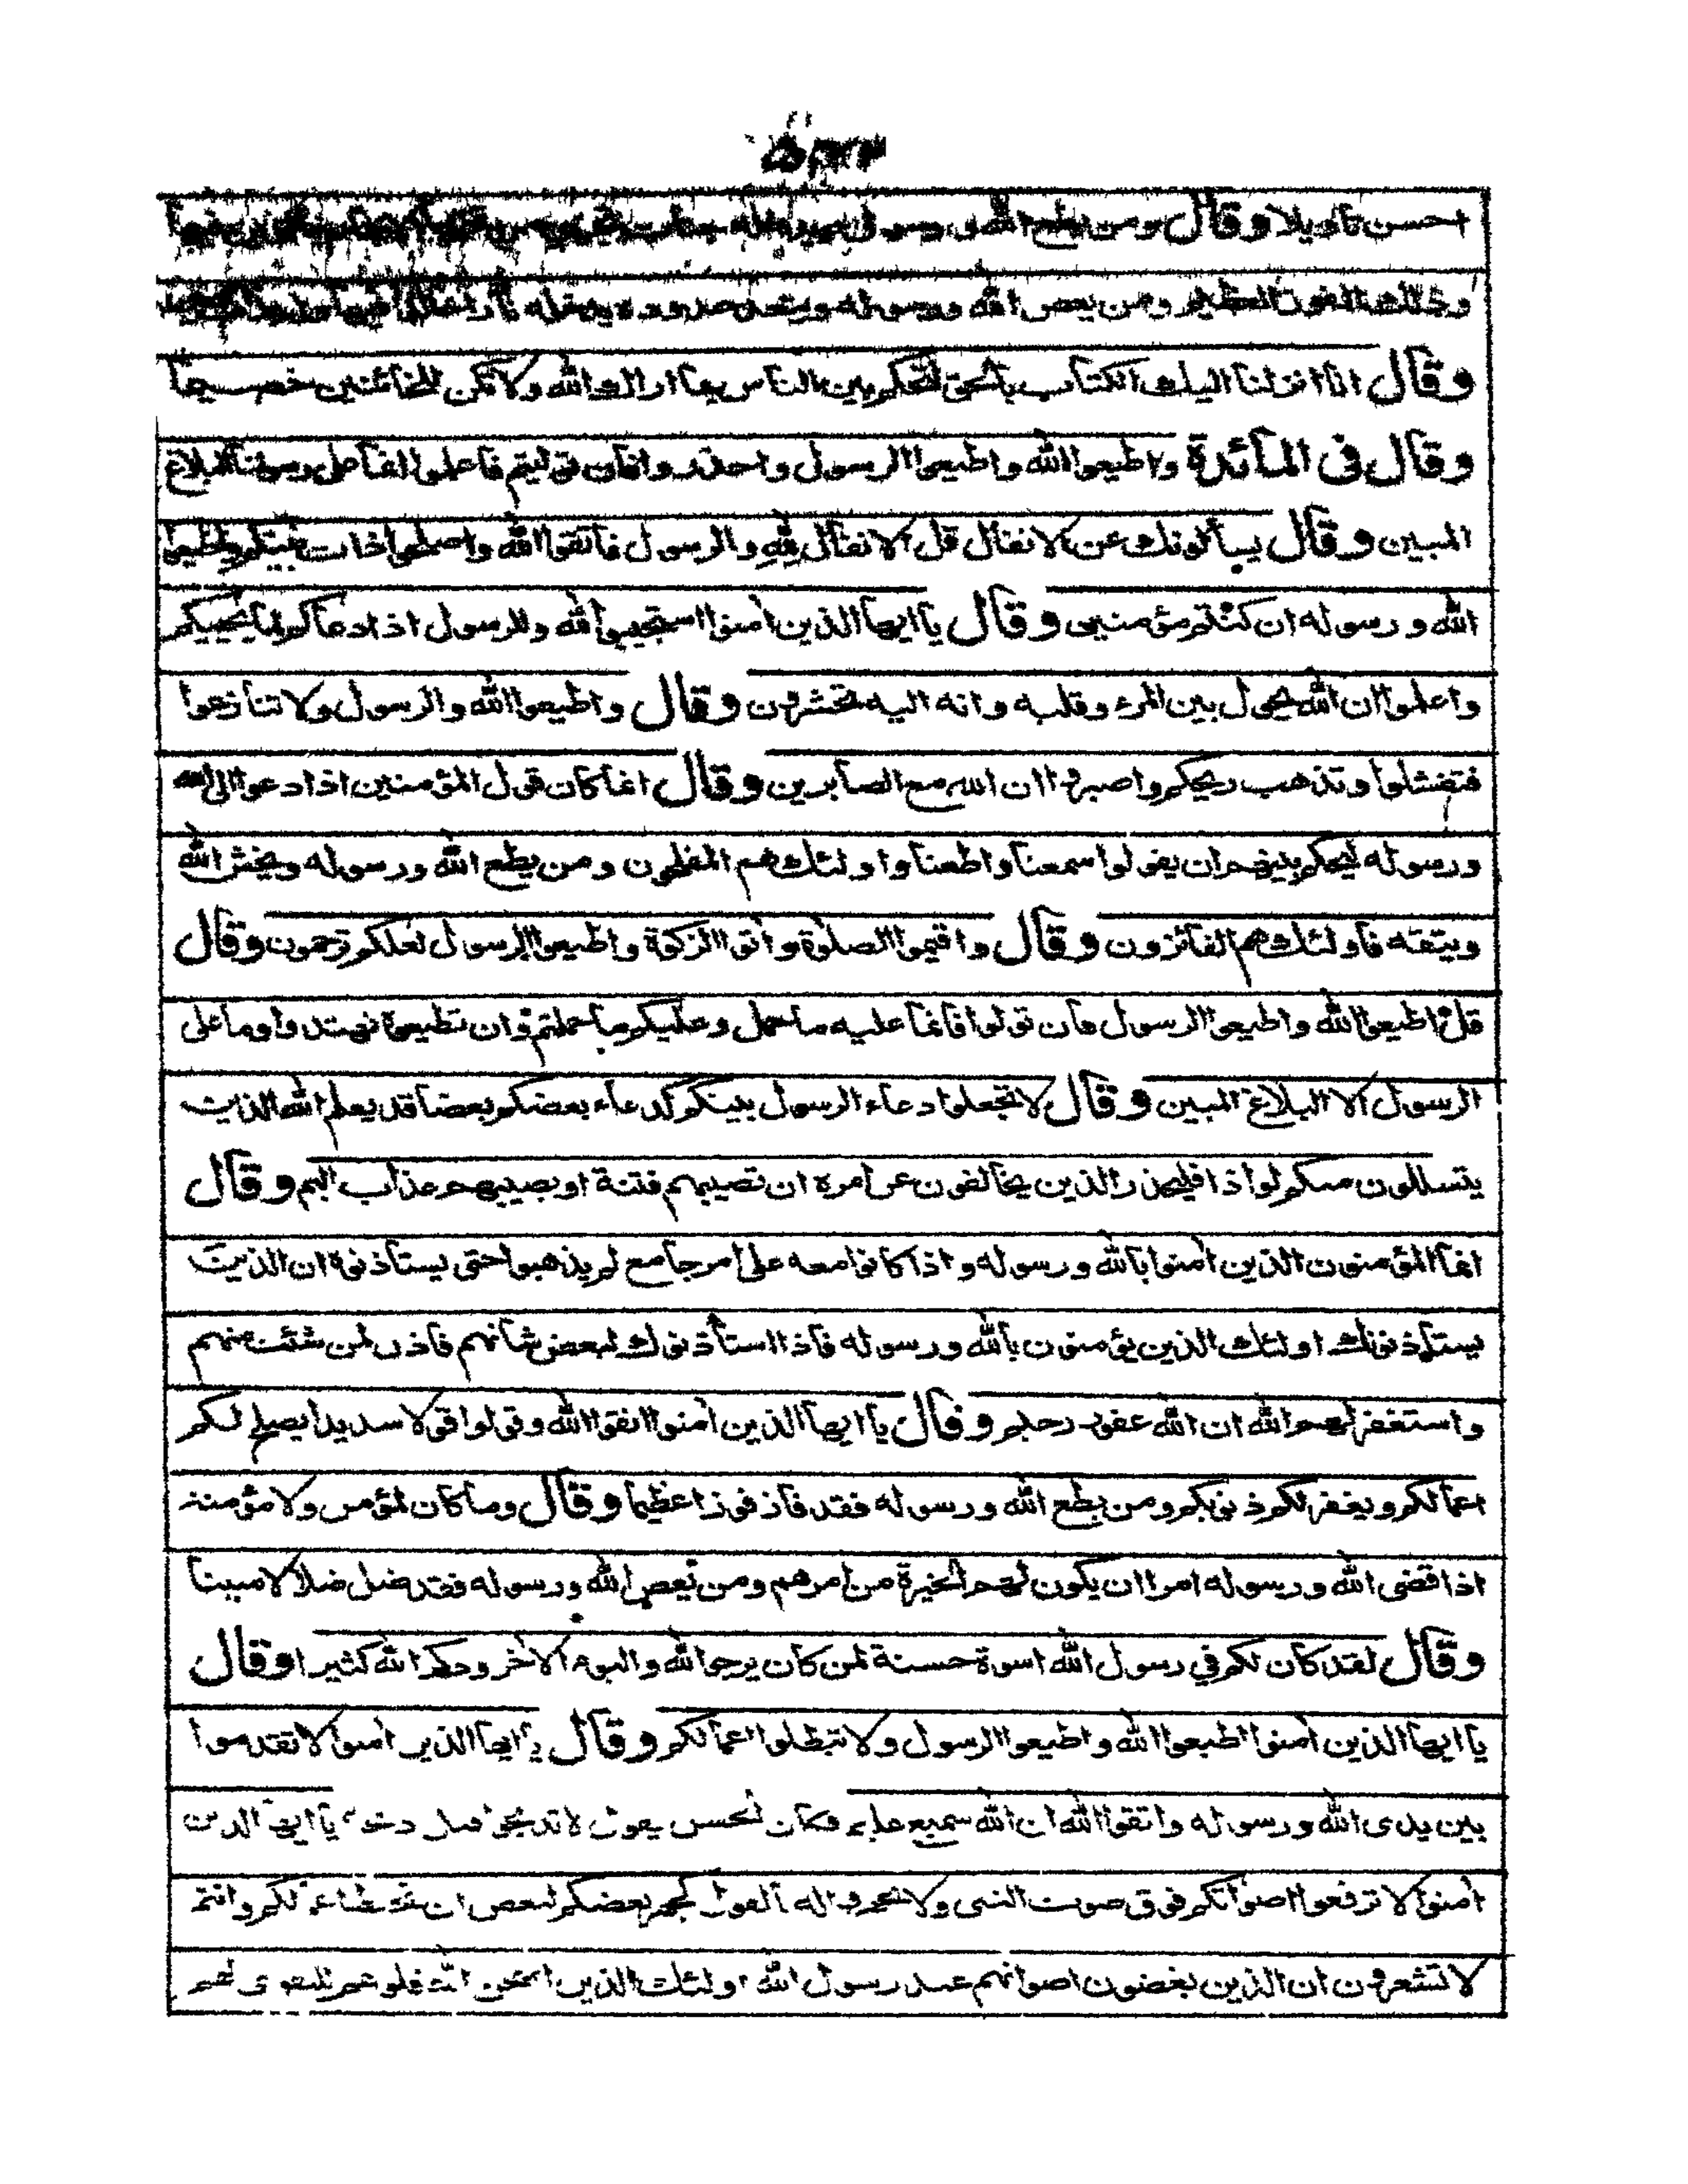 احسن تأويلا وقال ومن يطع الله ورسوله يدخله جنات تجري من
وذلك الفوز العظيم ومن يعص الله ورسوله ويتعد حدوده يدخله نارا خالدا فيها
وقال انا انزلنا اليك الكتاب بالحق لتحكم بين الناس بما اراك الله ولا تكن للخائنين خصيما
وقال فى المائدة واطيعوا الله واطيعوا الرسول واحذروا فان توليتم فاعلموا انما على رسولنا البلاغ
المبين وقال يسألونك عن الانفال قل الانفال لله والرسول فاتقوا الله واصلحوا ذات بينكم واطيعوا
الله ورسوله ان كنتم مؤمنين وقال يا ايها الذين امنوا استجيبوا لله وللرسول اذا دعاكم لما يحييكم
واعلموا ان الله يحول بين المرء وقلبه وانه اليه تحشرون وقال واطيعوا الله والرسول ولا تنازعوا
فتفشلوا وتذهب ريحكم واصبروا ان الله مع الصابرين وقال انما كان قول المؤمنين اذا دعوا الى الله
ورسوله ليحكم بينهم ان يقولوا سمعنا واطعنا واولئك هم المفلحون ومن يطع الله ورسوله ويخش الله
ويتقه فاولئك هم الفائزون وقال واقيموا الصلوة واتوا الزكوة واطيعوا الرسول لعلكم ترحمون وقال
قل اطيعوا الله واطيعوا الرسول فان تولوا فانما عليه ما حمل وعليكم ما حملتم وان تطيعوه تهتدوا وما على
الرسول الا البلاغ المبين وقال لا تجعلوا دعاء الرسول بينكم كدعاء بعضكم بعضا قد يعلم الله الذين
يتسللون منكم لواذا فليحذر الذين يخالفون عن امره ان تصيبهم فتنة او يصيبهم عذاب اليم وقال
انما المؤمنون الذين امنوا بالله ورسوله واذا كانوا معه على امر جامع لم يذهبوا حتى يستأذنوه ان الذين
يستأذنونك اولئك الذين يؤمنون بالله ورسوله فاذا استأذنوك لبعض شأنهم فاذن لمن شئت منهم
واستغفر لهم الله ان الله غفور رحيم وقال يا ايها الذين امنوا اتقوا الله وقولوا قولا سديدا يصلح لكم
اعمالكم ويغفر لكم ذنوبكم ومن يطع الله ورسوله فقد فاز فوزا عظيما وقال وما كان لمؤمن ولا مؤمنة
اذا قضى الله ورسوله امرا ان يكون لهم الخيرة من امرهم ومن يعص الله ورسوله فقد ضل ضلالا مبينا
وقال لقد كان لكم في رسول الله اسوة حسنة لمن كان يرجو الله واليوم الاخر وذكر الله كثيرا وقال
يا ايها الذين امنوا اطيعوا الله واطيعوا الرسول ولا تبطلوا اعمالكم وقال يا ايها الذين امنوا لا تقدموا
بين يدى الله ورسوله واتقوا الله ان الله سميع عليم فكان الحسن يقول لا تذبحوا قبل ذبحه يا ايها الذين
امنوا لا ترفعوا اصواتكم فوق صوت النبى ولا تجهروا له بالقول كجهر بعضكم لبعض ان تحبط اعمالكم وانتم
لا تشعرون ان الذين يغضون اصواتهم عند رسول الله اولئك الذين امتحن الله قلوبهم للتقوى لهم